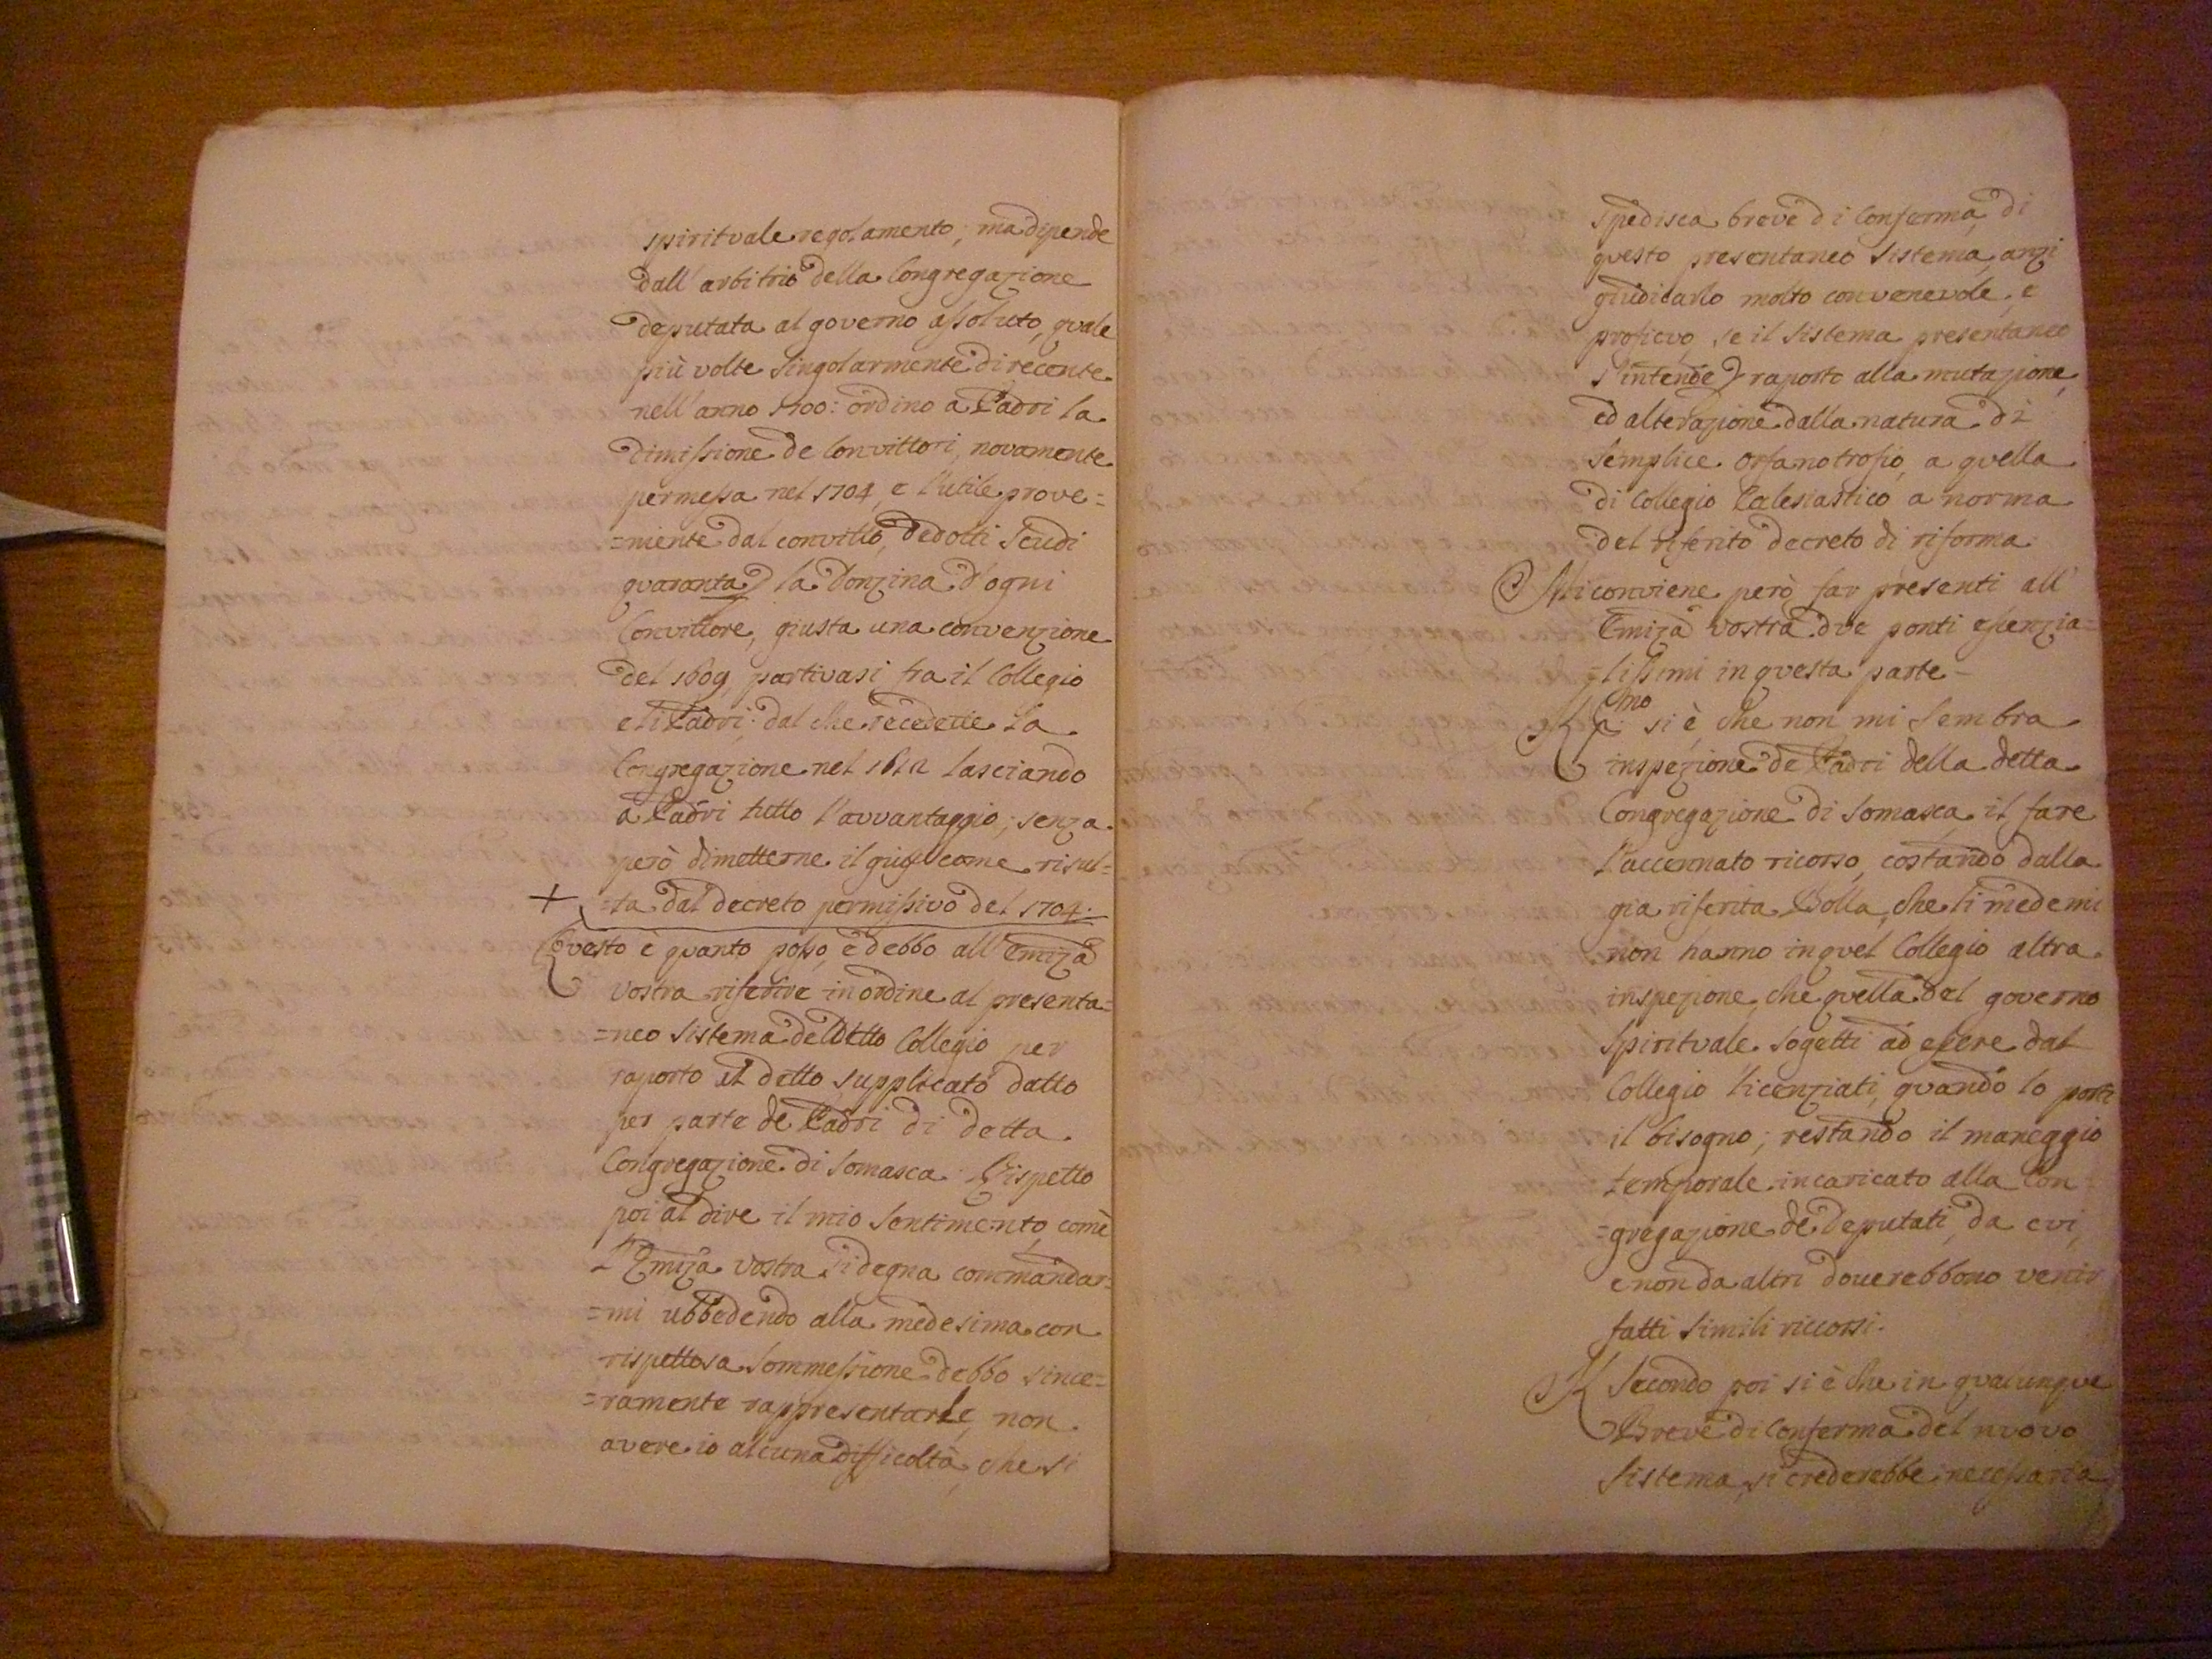 spirituale regolamento; ma dipende
dall'arbitrio della Congregazione
deputata al governo assoluto, quale
più volte singolarmente di recente
nell'anno 1700: ordino a Padri la
dimissione de Convittori, novamente
permessa nel 1704, e l'utile prove=
=niente dal convitto, dedotti scudi
quaranta la donzina d'ogni
Convittore, giusta una convenzione
del 1609, partivasi tra il Collegio
e li Padri; dal che recedette la
Congregazione nel lasciando
a Padri tutto l'avvantaggio; senza
però dimetterne il come risul=
+ =ta dal decreto permissivo del 1704.
Questo è quanto posso, e debbo all'Emiza
vostra riferire in ordine al presenta=
=neo sistema del detto Collegio per
raporto al detto supplicato dallo
per parte de Padri di detta
Congregazione di Somasca. Rispetto
poi al dire il mio sentimento, come
l'Emiza vostra si degna commandar=
=mi ubbedendo alla medesima con
rispettosa sommessione debbo since=
=ramente rappresentarle, non
avere io alcuna difficoltà, che si
spedisca breve di conferma di
questo presentaneo sistema, anzi
giudicarlo molto convenevole, e
proficuo, se il sistema presentaneo
s'intende raporto alla mutazione,
ed alterazione dalla natura di
semplice orfanotrofio, a quella
di Collegio Eclesiastico a norma
del riferito decreto di riforma
Mi conviene però far presenti all'
Emiza vostra due ponti essenzia=
=lissimi in questa parte-
P.mo si è, che non mi sembra
inspezione de Padri della detta
Congregazione di Somasca il fare
l'accennato ricorso, costando dalla
gia riferita Bolla, che li medemi
non hanno in quel Collegio altra
inspezione, che quella del governo
spirituale sogetti ad essere dal
Collegio licenziati, quando lo porti
il bisogno; restando il maneggio
temporale incaricato alla Con=
=gregazione de Deputati, da cui,
e non da altri douerebbono venir
fatti simili riccorsi.
Secondo poi si è che in qualunque
Breve di conferma del nuovo
sistema, si crederebbe necessaria